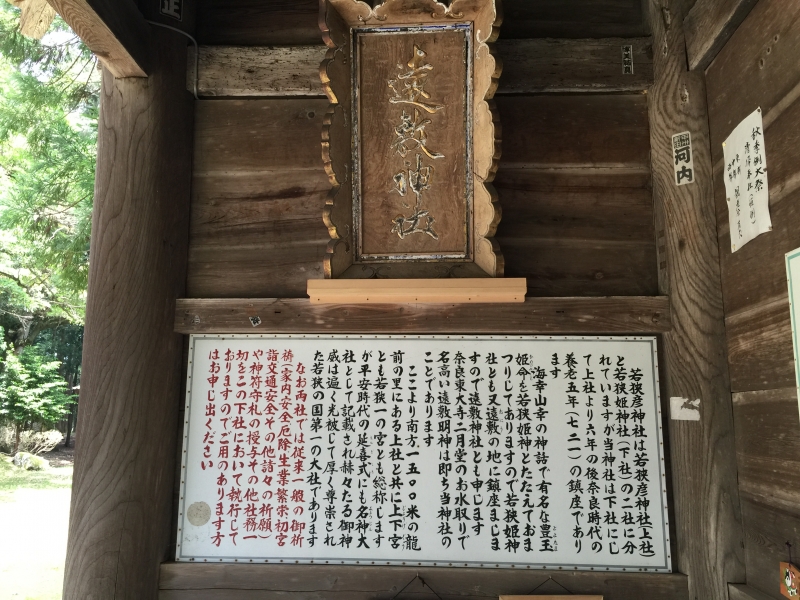 遠敷神社
若狭彦神社は若狭彦神社(上社)
と若狭姫神社(下社)の二社に分
れていますが当神社は下社にし
て上社より六年の後奈良時代の
養老五年(七二一)の鎮座であり
ます
海幸山幸の神話で有名な豊玉
姫命を若狭姫神とたたえておま
つりしてありますので若狭姫神
社とも又遠敷の地に鎮座まします
すので遠敷神社とも申します
奈良東大寺二月堂のお水取りで
名高い遠敷明神は即ち当神社の
ことであります
ここより南方一五〇〇米の龍
前の里にある上社と共に上下宮
とも若狭一の宮とも総称します
が平安時代の延喜式にも名神大
社として記載され赫々たる御神
威は遍く光被して厚く尊崇され
た若狭の国第一の大社であります
なお両社では従来一般の御祈
祷(家内安全厄除生業繁栄初宮
詣交通安全その他諸々の祈願)
や神符守札の授与その他社務一
切をこの下社において執行して
おりますのでご用のあります方
はお申し出ください
河内
秋季例大祭
正